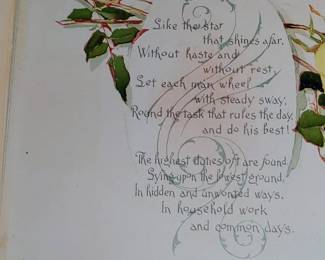 Like the star
that shines afar,
Without haste and
without rest,
Let each man wheel
with steady sway,
Round the task that rules the day,
and do his best!
The highest duties oft are found
Lying upon the lowest ground,
In hidden and unwonted ways,
In household work
and common days.